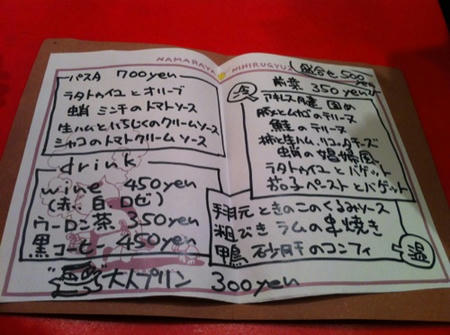 NAMAHAYA
NIHIRUGYU
パスタ 700yen
ラタトゥイユとオリーブ
蛸ミンチのトマトソース
生ハムといちじくのクリームソース
シャコのトマトクリームソース
drink
wine 450yen
(赤、白、ロゼ)
ウーロン茶 350yen
黒コーヒー 450yen
大人プリン 300yen
盛合せ 500yen
前菜 350yen
冷
アキレス腱 固め
のテリーヌ
鮭のテリーヌ
柿と生ハム、リコッタチーズ
蛸の娼婦風
ラタトゥイユとバゲット
ペーストとバゲット
ときのこのくるみソース
粗びきラムの串焼き
鴨 砂肝のコンフィ
温